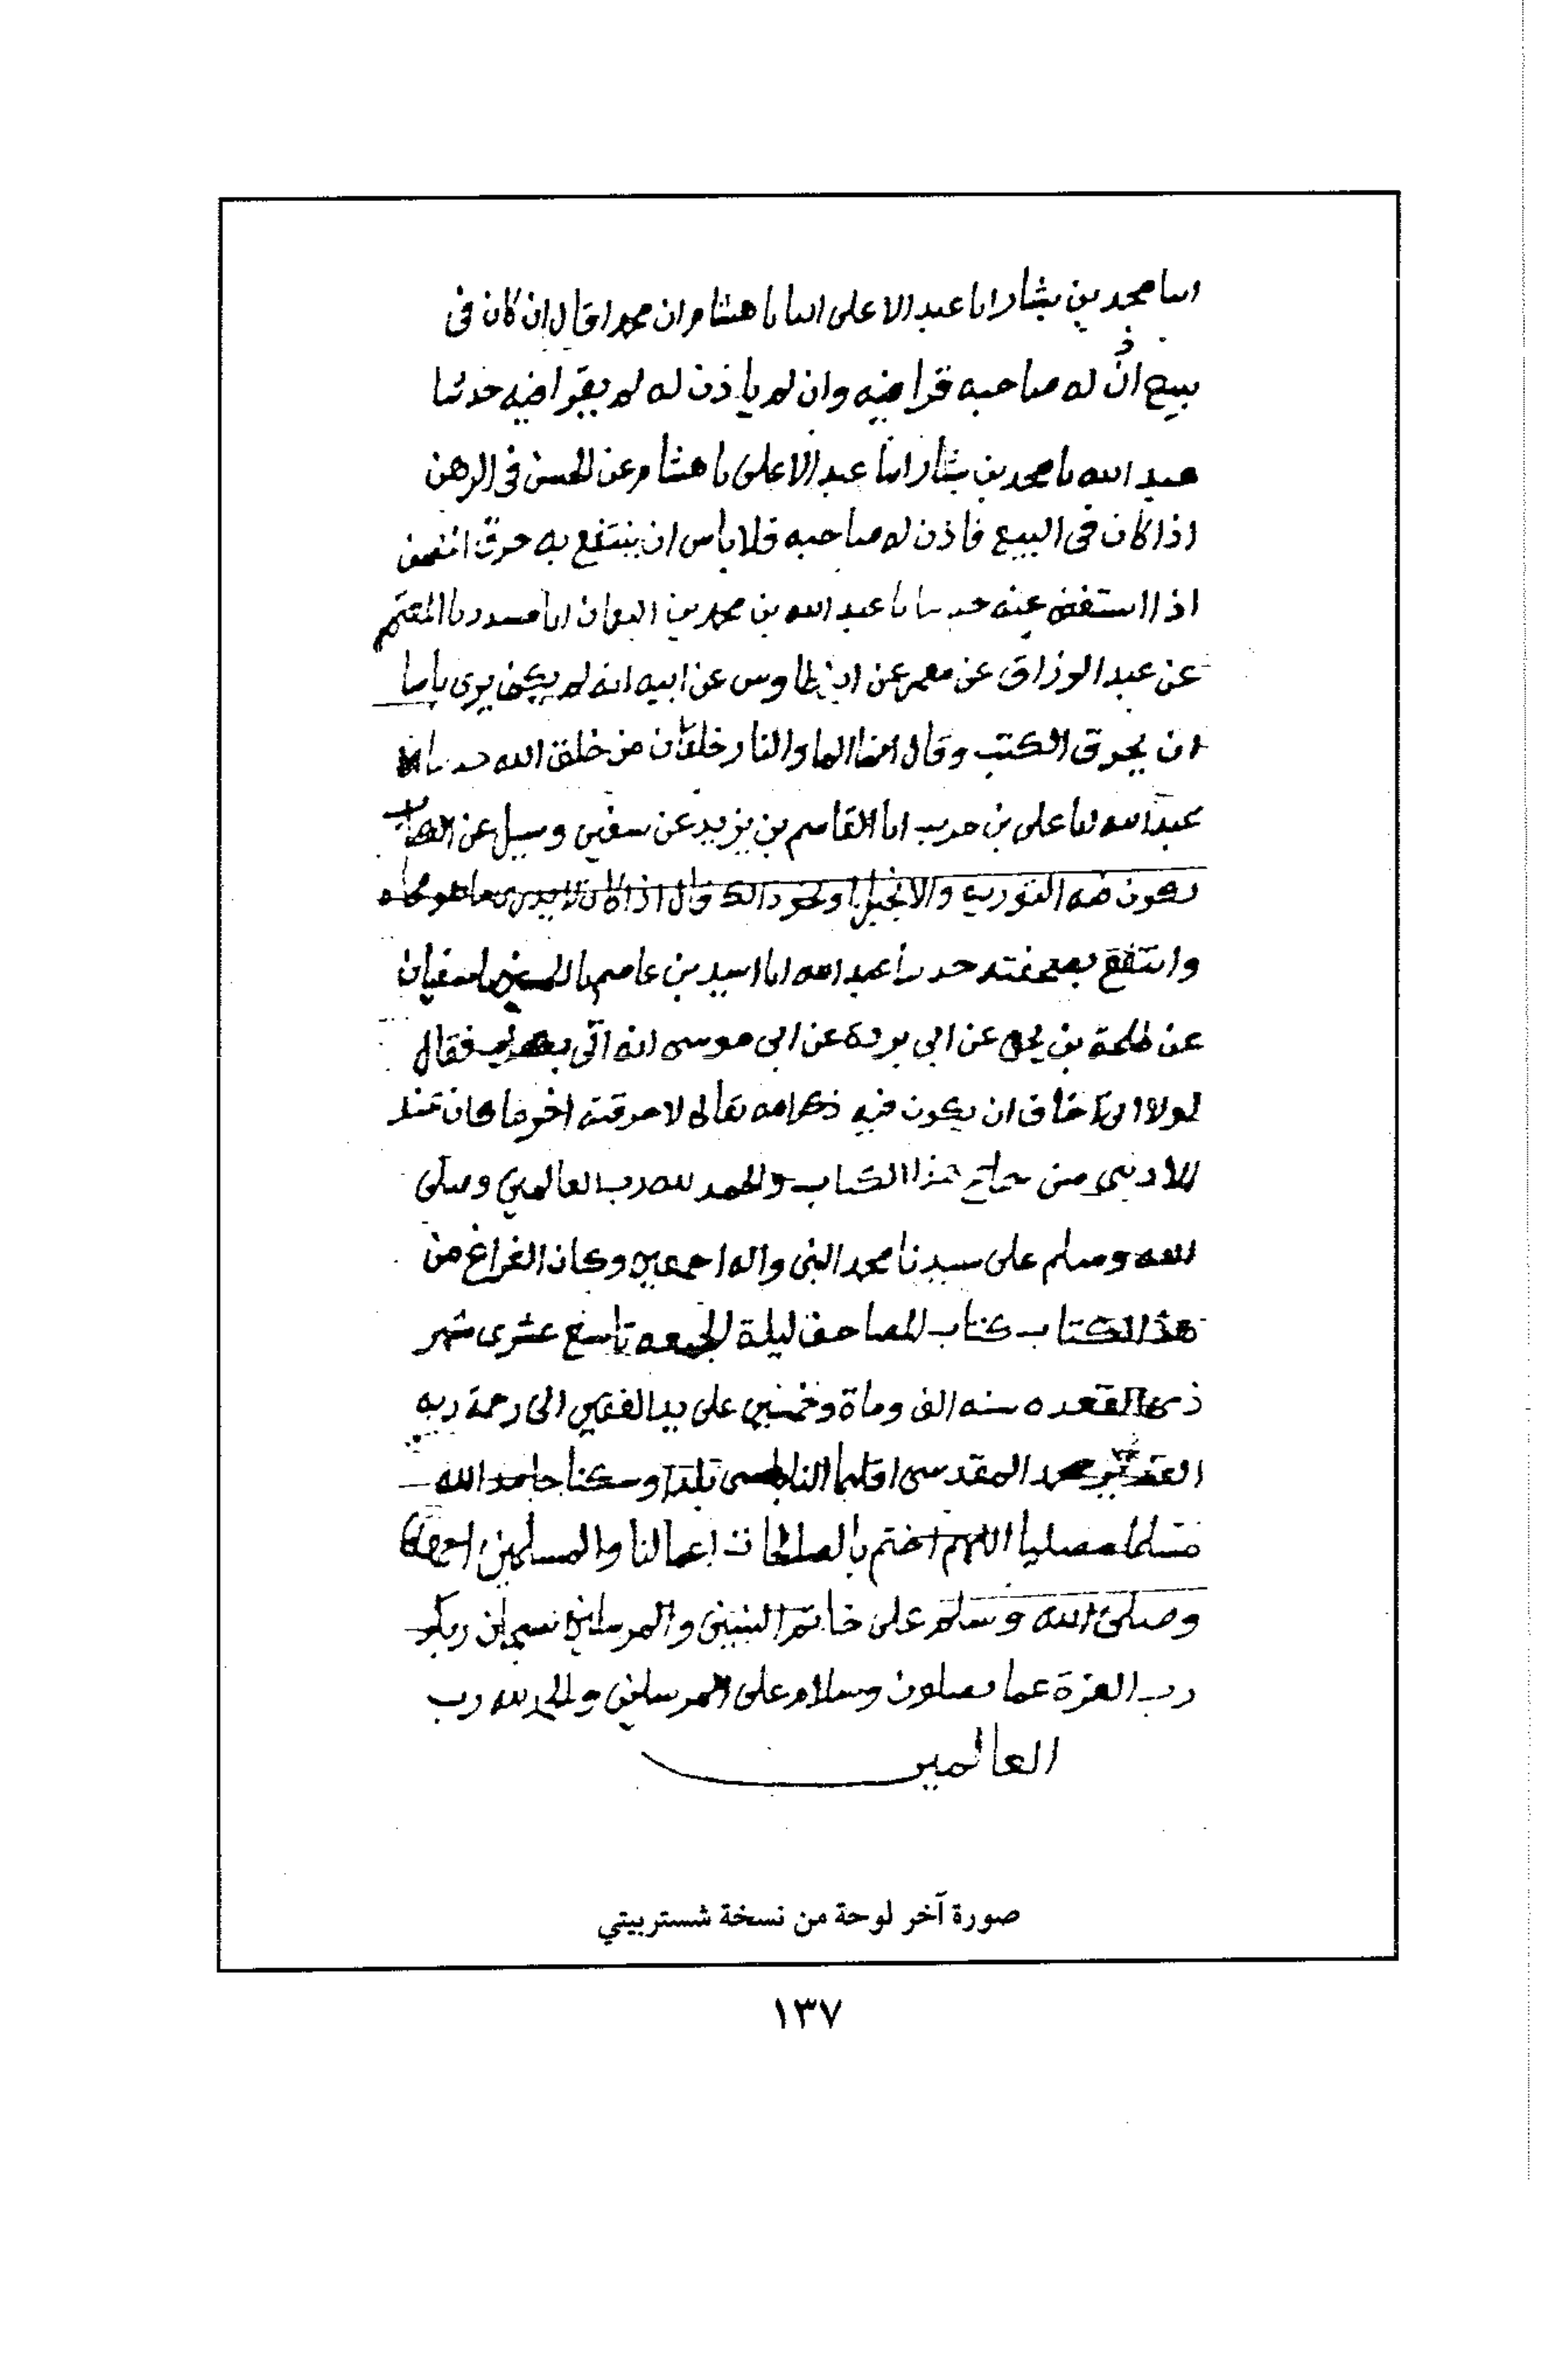 انبا محمد بن بشار انا عبد الاعلى انبا نا هشام ان محمدا قال ان كان فى
بيع اذن له صاحبه قرا فيه وان لم ياذن له لم يقرا فيه حدثنا
عبد الله نا محمد بن بشار انبا عبد الاعلى نا هشام عن الحسن فى الرهن
اذا كان فى البيع فاذن له صاحبه فلا باس ان ينتفع به حرق
اذا استغنى عنه حدثنا عبد الله بن محمد بن النعمان انا مسدد نا المعتمر
عن عبد الرزاق عن معمر عن ابن طاوس عن ابيه انه لم يكن يرى باسا
ان يحرق الكتب وقال انما الما والنار خلقان من خلق الله حدثنا
عبد الله نا على بن حرب انا القاسم بن يزيد عن سفين وسيل عن
يكون فيه التورية والانجيل او نحو ذالك قال اذا كان لا يدرى ما هو محاه
وانتفع بصحيفته حدثنا عبد الله انا اسيد بن عاصم نا الحسين نا سفيان
عن طلحة بن يحيى عن ابى بردة عن ابى موسى انه اتى بكتاب فقال
لولا انى اخاف ان يكون فيه ذكر الله تعالى لاحرقته اخر ما كان عند
من هذا الكتاب والحمد لله رب العالمين وصلى
الله وسلم على سيدنا محمد النبى واله اجمعين وكان الفراغ من
هذا الكتاب كتاب المصاحف ليلة الجمعه تاسع عشرى شهر
ذى القعده سنه الف وماة وخمسين على يد الفقير الى رحمة ربه
القدير محمد المقدسى اقليما النابلسى بلدا وسكنا حامد الله
مسلما مصليا اللهم اختم بالصالحات اعمالنا والمسلمين
وصلى الله وسلم على خاتم النبيين والمرسلين سبحان ربك
رب العزة عما يصفون وسلام على المرسلين والحمد لله رب
العالمين
صورة آخر لوحة من نسخة شستربيتي
١٣٧